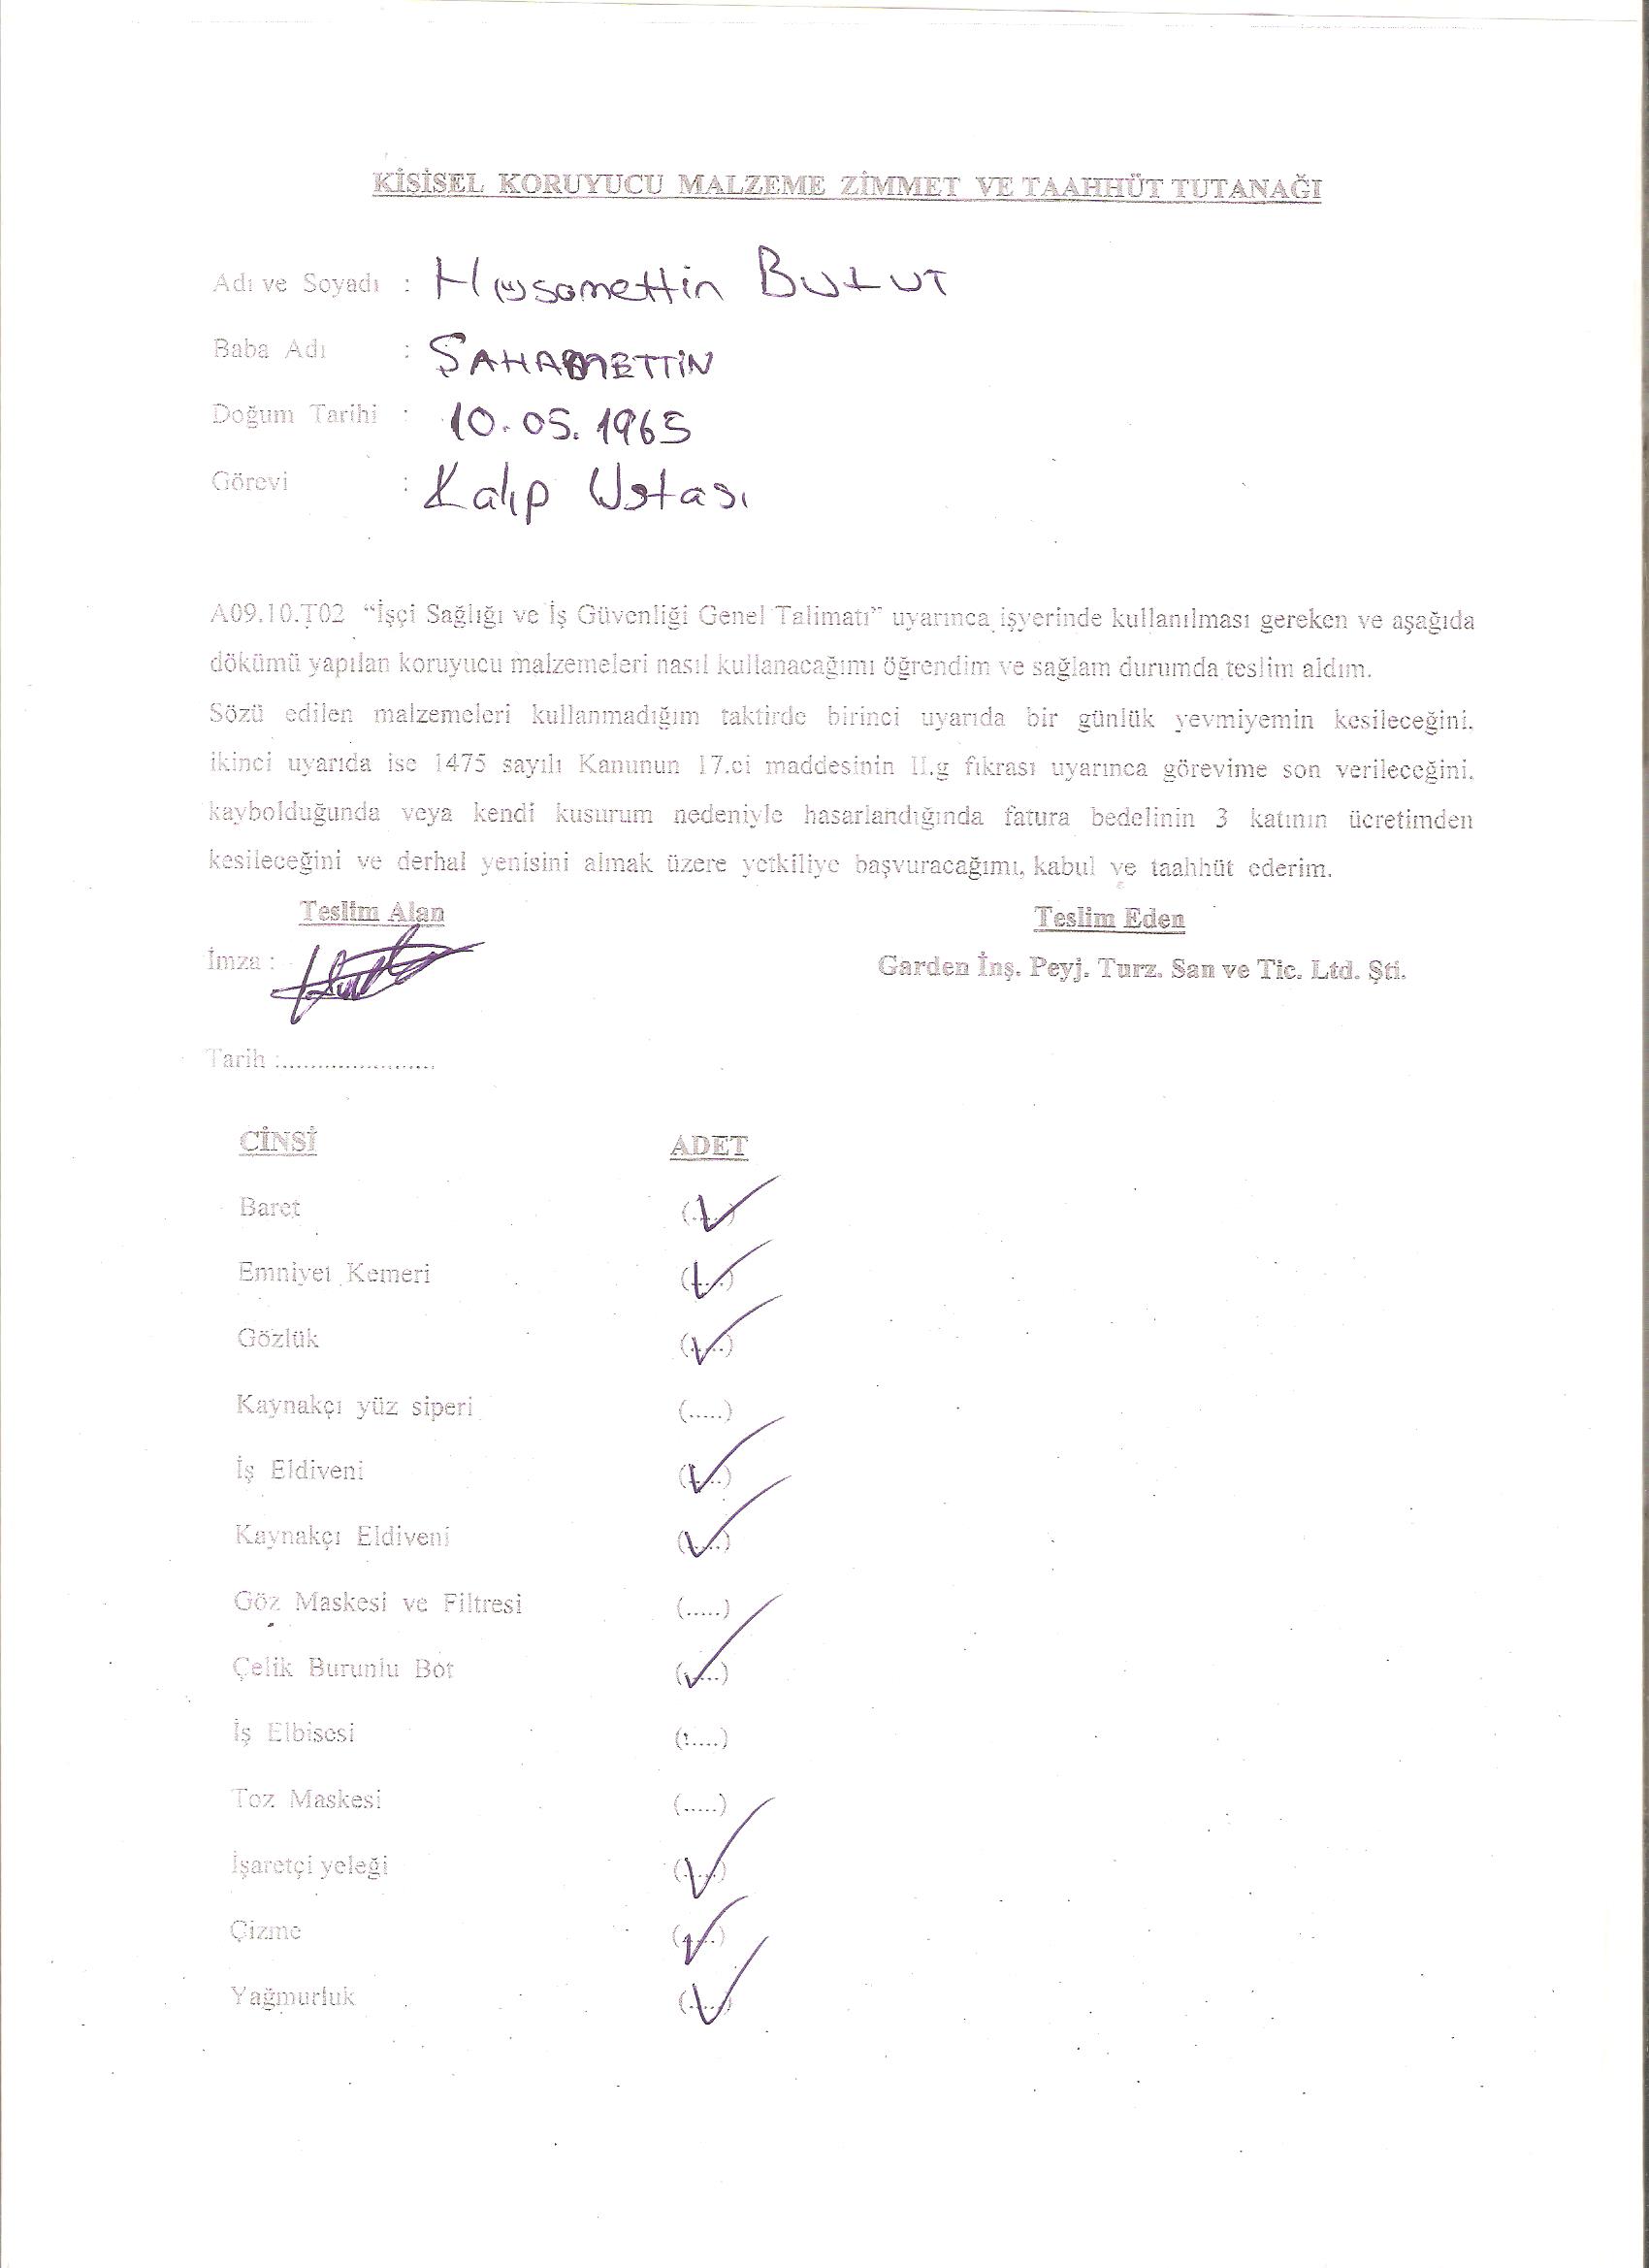 KİŞİSEL KORUYUCU MALZEME ZİMMET VE TAAHHÜT TUTANAĞI
Adı ve Soyadı : Hüsamettin BULUT
Baba Adı : ŞAHAMETTİN
Doğum Tarihi : 10.05.1965
Görevi : Kalıp Ustası
A09.10.T02 “İşçi Sağlığı ve İş Güvenliği Genel Talimatı” uyarınca işyerinde kullanılması gereken ve aşağıda
dökümü yapılan koruyucu malzemeleri nasıl kullanacağımı öğrendim ve sağlam durumda teslim aldım.
Sözü edilen malzemeleri kullanmadığım taktirde birinci uyarıda bir günlük yevmiyemin kesileceğini,
ikinci uyarıda ise 1475 sayılı Kanunun 17.ci maddesinin II.g fıkrası uyarınca görevime son verileceğini,
kaybolduğunda veya kendi kusurum nedeniyle hasarlandığında fatura bedelinin 3 katının ücretimden
kesileceğini ve derhal yenisini almak üzere yetkiliye başvuracağımı, kabul ve taahhüt ederim.
Teslim Alan Teslim Eden
İmza : Garden İnş. Peyj. Turz. San ve Tic. Ltd. Şti.
Tarih :......................
CİNSİ ADET
Baret (.....) ✓
Emniyet Kemeri (.....) ✓
Gözlük (.....) ✓
Kaynakçı yüz siperi (.....)
İş Eldiveni (.....) ✓
Kaynakçı Eldiveni (.....) ✓
Göz Maskesi ve Filtresi (.....)
Çelik Burunlu Bot (.....) ✓
İş Elbisesi (.....)
Toz Maskesi (.....)
İşaretçi yeleği (.....) ✓
Çizme (.....) ✓
Yağmurluk (.....) ✓